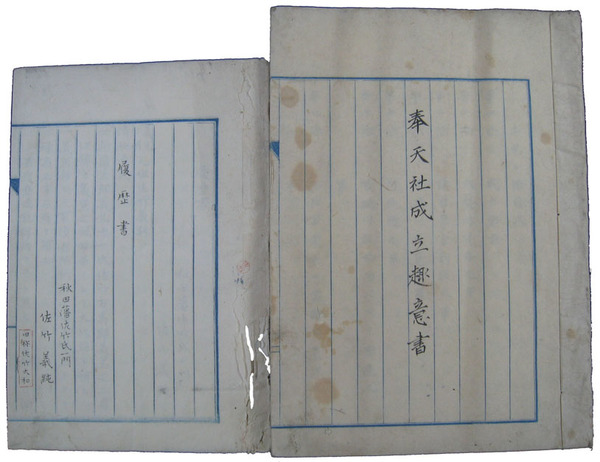 奉天社成立趣意書
履歴書
秋田藩佐竹氏一門
佐竹義